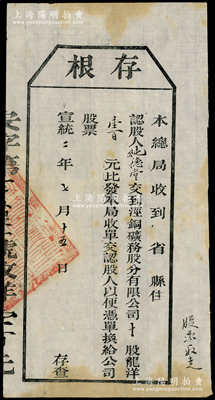 上海陽明拍賣
存根
本總局收到 省 縣住
認股人純德堂交到涇銅礦務股分有限公司十股龍洋
壹百 元比發本局收單交認股人以便憑單換給公司
股票
宣統二年七月十五日 存查
股票取走